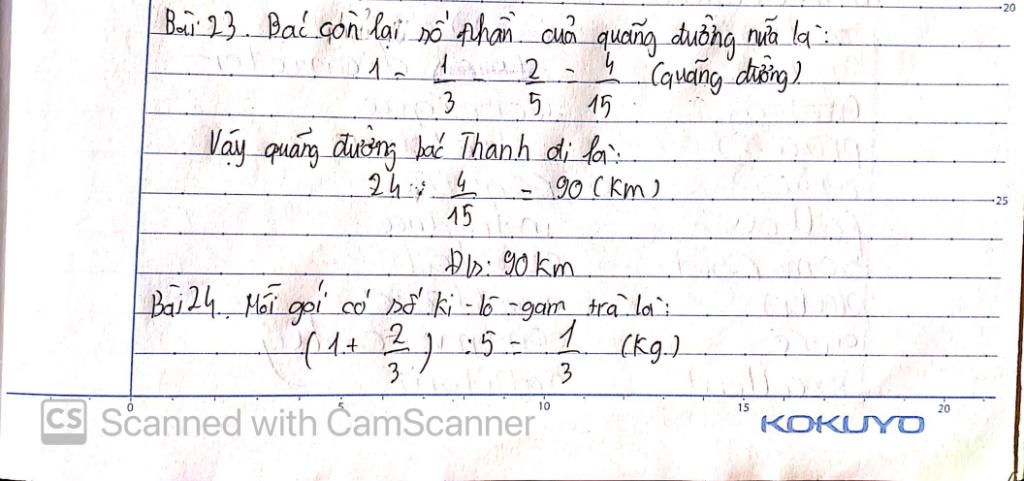 20
Bài 23. Bác còn lại số phần của quãng đường nữa là:
1 - 1/3 - 2/5 = 4/15 (quãng đường)
Vậy quãng đường bác Thanh đi là:
24 : 4/15 = 90 (km)
25
Đ/s: 90 km
Bài 24. Mỗi gói có số ki-lô-gam trà là:
(1 + 2/3) : 5 = 1/3 (kg.)
0 5 10 15 20
CS Scanned with CamScanner
KOKUYO